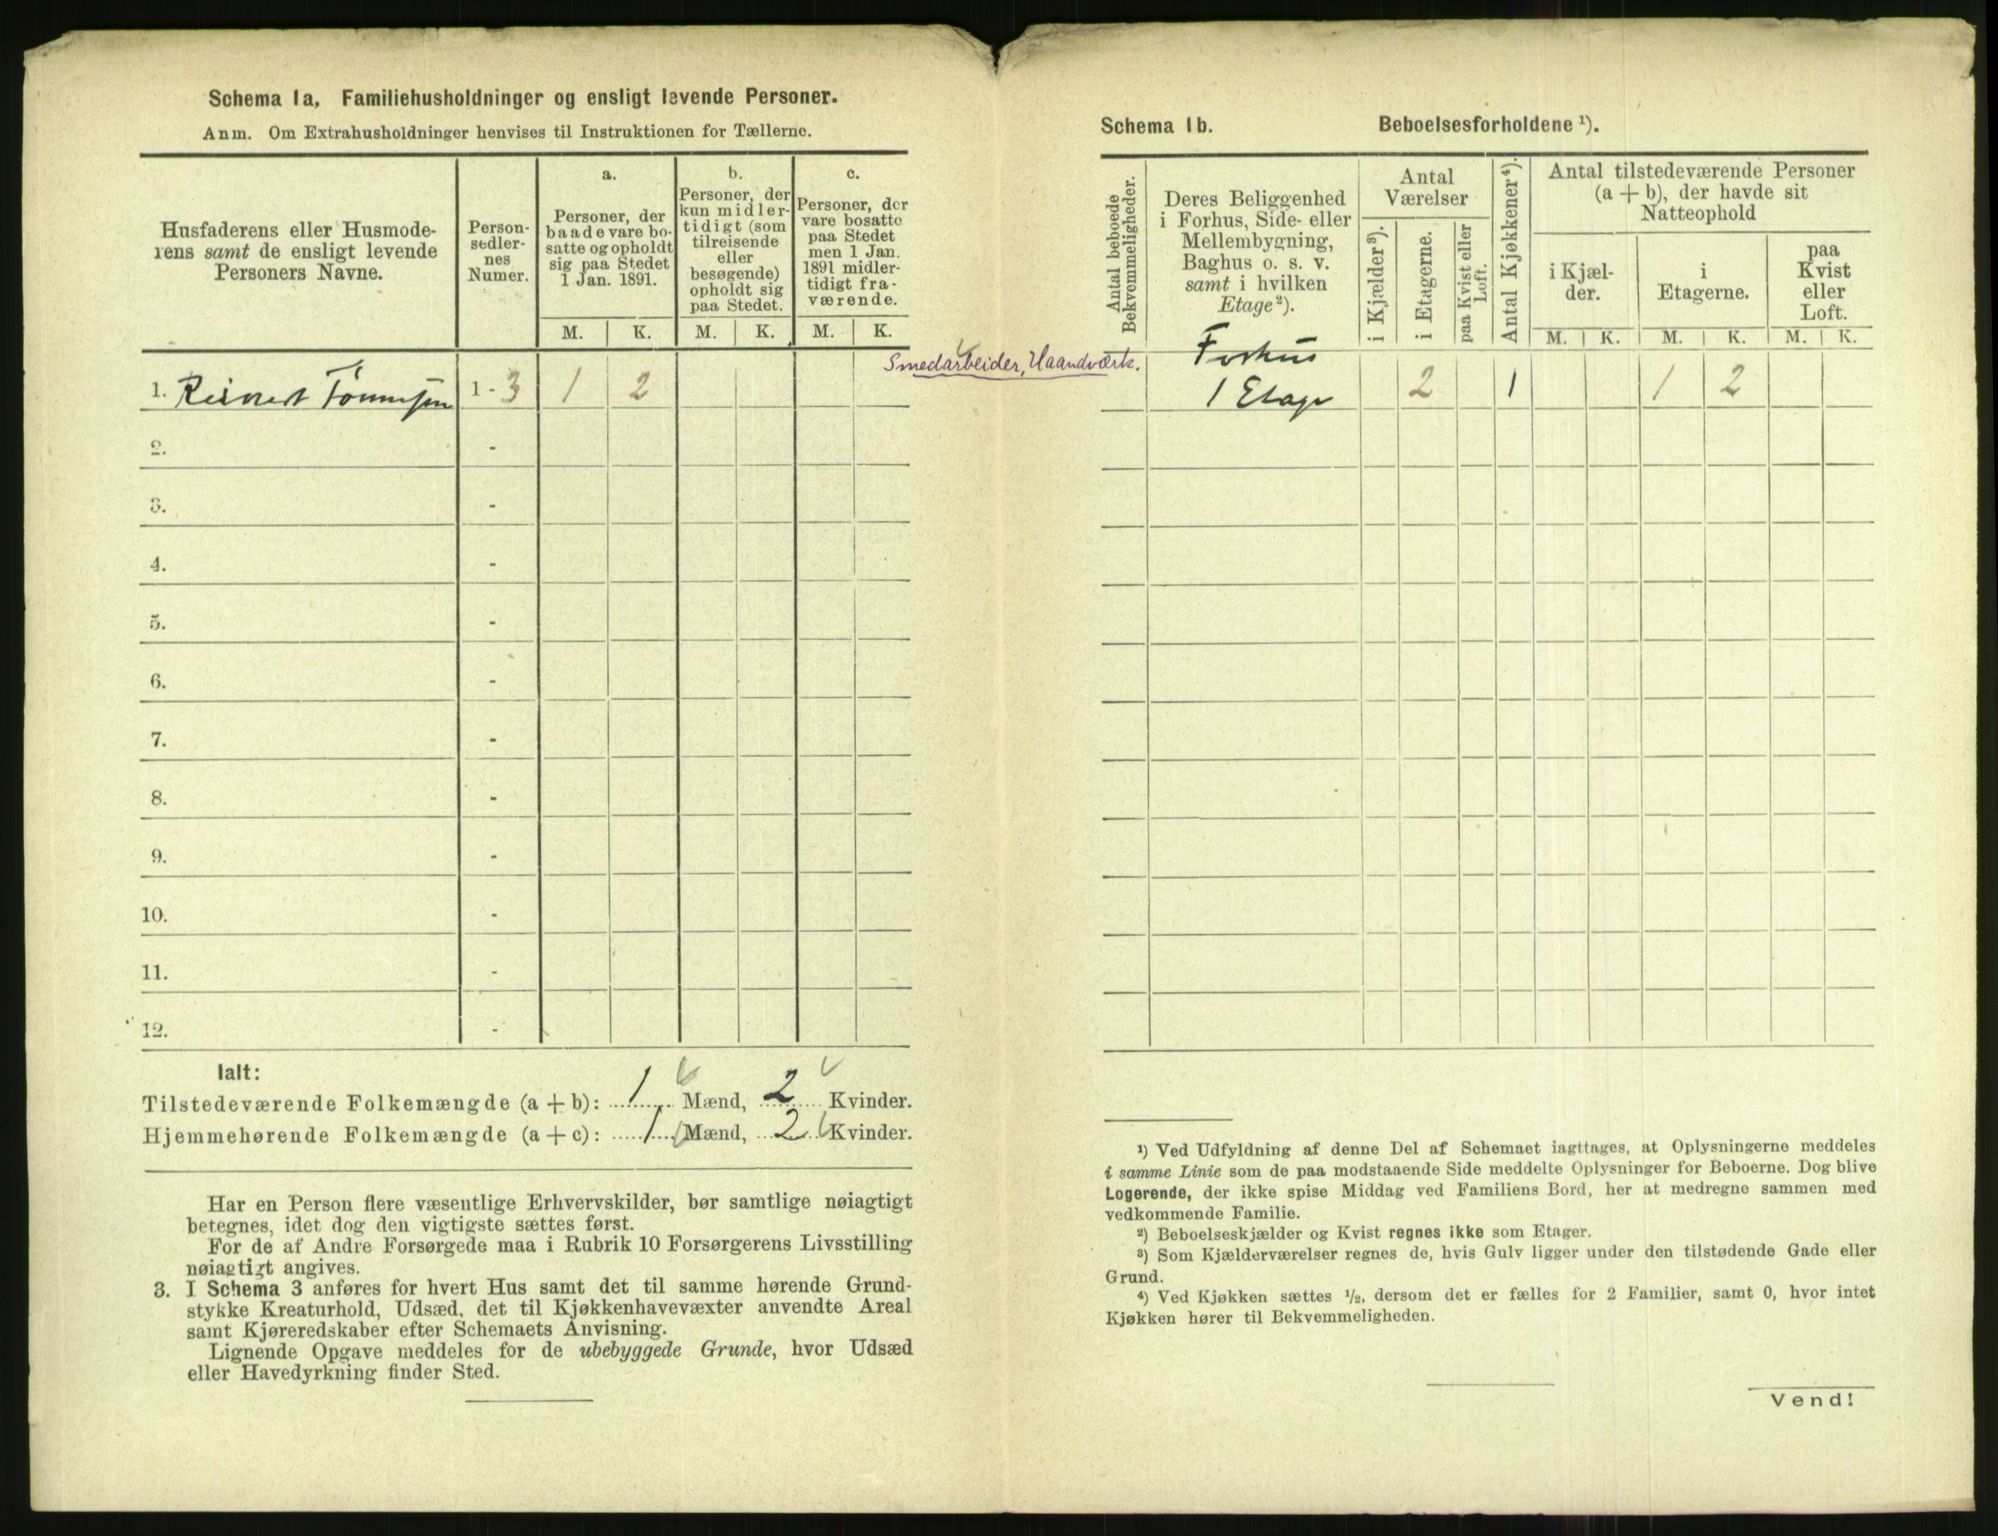 Schema 1a, Familiehusholdninger og ensligt levende Personer.
Anm. Om Extrahusholdninger henvises til Instruktionen for Tællerne.
Husfaderens eller Husmode-
rens samt de ensligt levende
Personers Navne.
Person-
sedler-
nes
Numer.
a.
Personer, der
baade vare bo-
satte og opholdt
sig paa Stedet
1 Jan. 1891.
b.
Personer, der
kun midler-
tidigt (som
tilreisende
eller
besøgende)
opholdt sig
paa Stedet.
c.
Personer, der
vare bosatte
paa Stedet
men 1 Jan.
1891 midler-
tidigt fra-
værende.
M. K. M. K. M. K.
1. Reinert Tönnesen 1 - 3 1 2
2. -
3. -
4. -
5. -
6. -
7. -
8. -
9. -
10. -
11. -
12. -
Ialt:
Tilstedeværende Folkemængde (a + b): 1 Mænd, 2 Kvinder.
Hjemmehørende Folkemængde (a + c): 1 Mænd, 2 Kvinder.
Har en Person flere væsentlige Erhvervskilder, bør samtlige nøiagtigt
betegnes, idet dog den vigtigste sættes først.
For de af Andre Forsørgede maa i Rubrik 10 Forsørgerens Livsstilling
nøiagtigt angives.
3. I Schema 3 anføres for hvert Hus samt det til samme hørende Grund-
stykke Kreaturhold, Udsæd, det til Kjøkkenhavevæxter anvendte Areal
samt Kjøreredskaber efter Schemaets Anvisning.
Lignende Opgave meddeles for de ubebyggede Grunde, hvor Udsæd
eller Havedyrkning finder Sted.
Schema 1b. Beboelsesforholdene ¹).
Antal beboede
Bekvemmeligheder.
Deres Beliggenhed
i Forhus, Side- eller
Mellembygning,
Baghus o. s. v.
samt i hvilken
Etage²).
Antal
Værelser
i Kjælder³).
i Etagerne.
paa Kvist eller
Loft.
Antal Kjøkkener⁴).
Antal tilstedeværende Personer
(a + b), der havde sit
Natteophold
i Kjæl-
der.
i
Etagerne.
paa
Kvist
eller
Loft.
M. K. M. K. M. K.
Smedarbeider, Haandværk.
Forhus
1 Etage 2 1 1 2
¹) Ved Udfyldning af denne Del af Schemaet iagttages, at Oplysningerne meddeles
i samme Linie som de paa modstaaende Side meddelte Oplysninger for Beboerne. Dog blive
Logerende, der ikke spise Middag ved Familiens Bord, her at medregne sammen med
vedkommende Familie.
²) Beboelseskjælder og Kvist regnes ikke som Etager.
³) Som Kjælderværelser regnes de, hvis Gulv ligger under den tilstødende Gade eller
Grund.
⁴) Ved Kjøkken sættes ½, dersom det er fælles for 2 Familier, samt 0, hvor intet
Kjøkken hører til Bekvemmeligheden.
Vend!